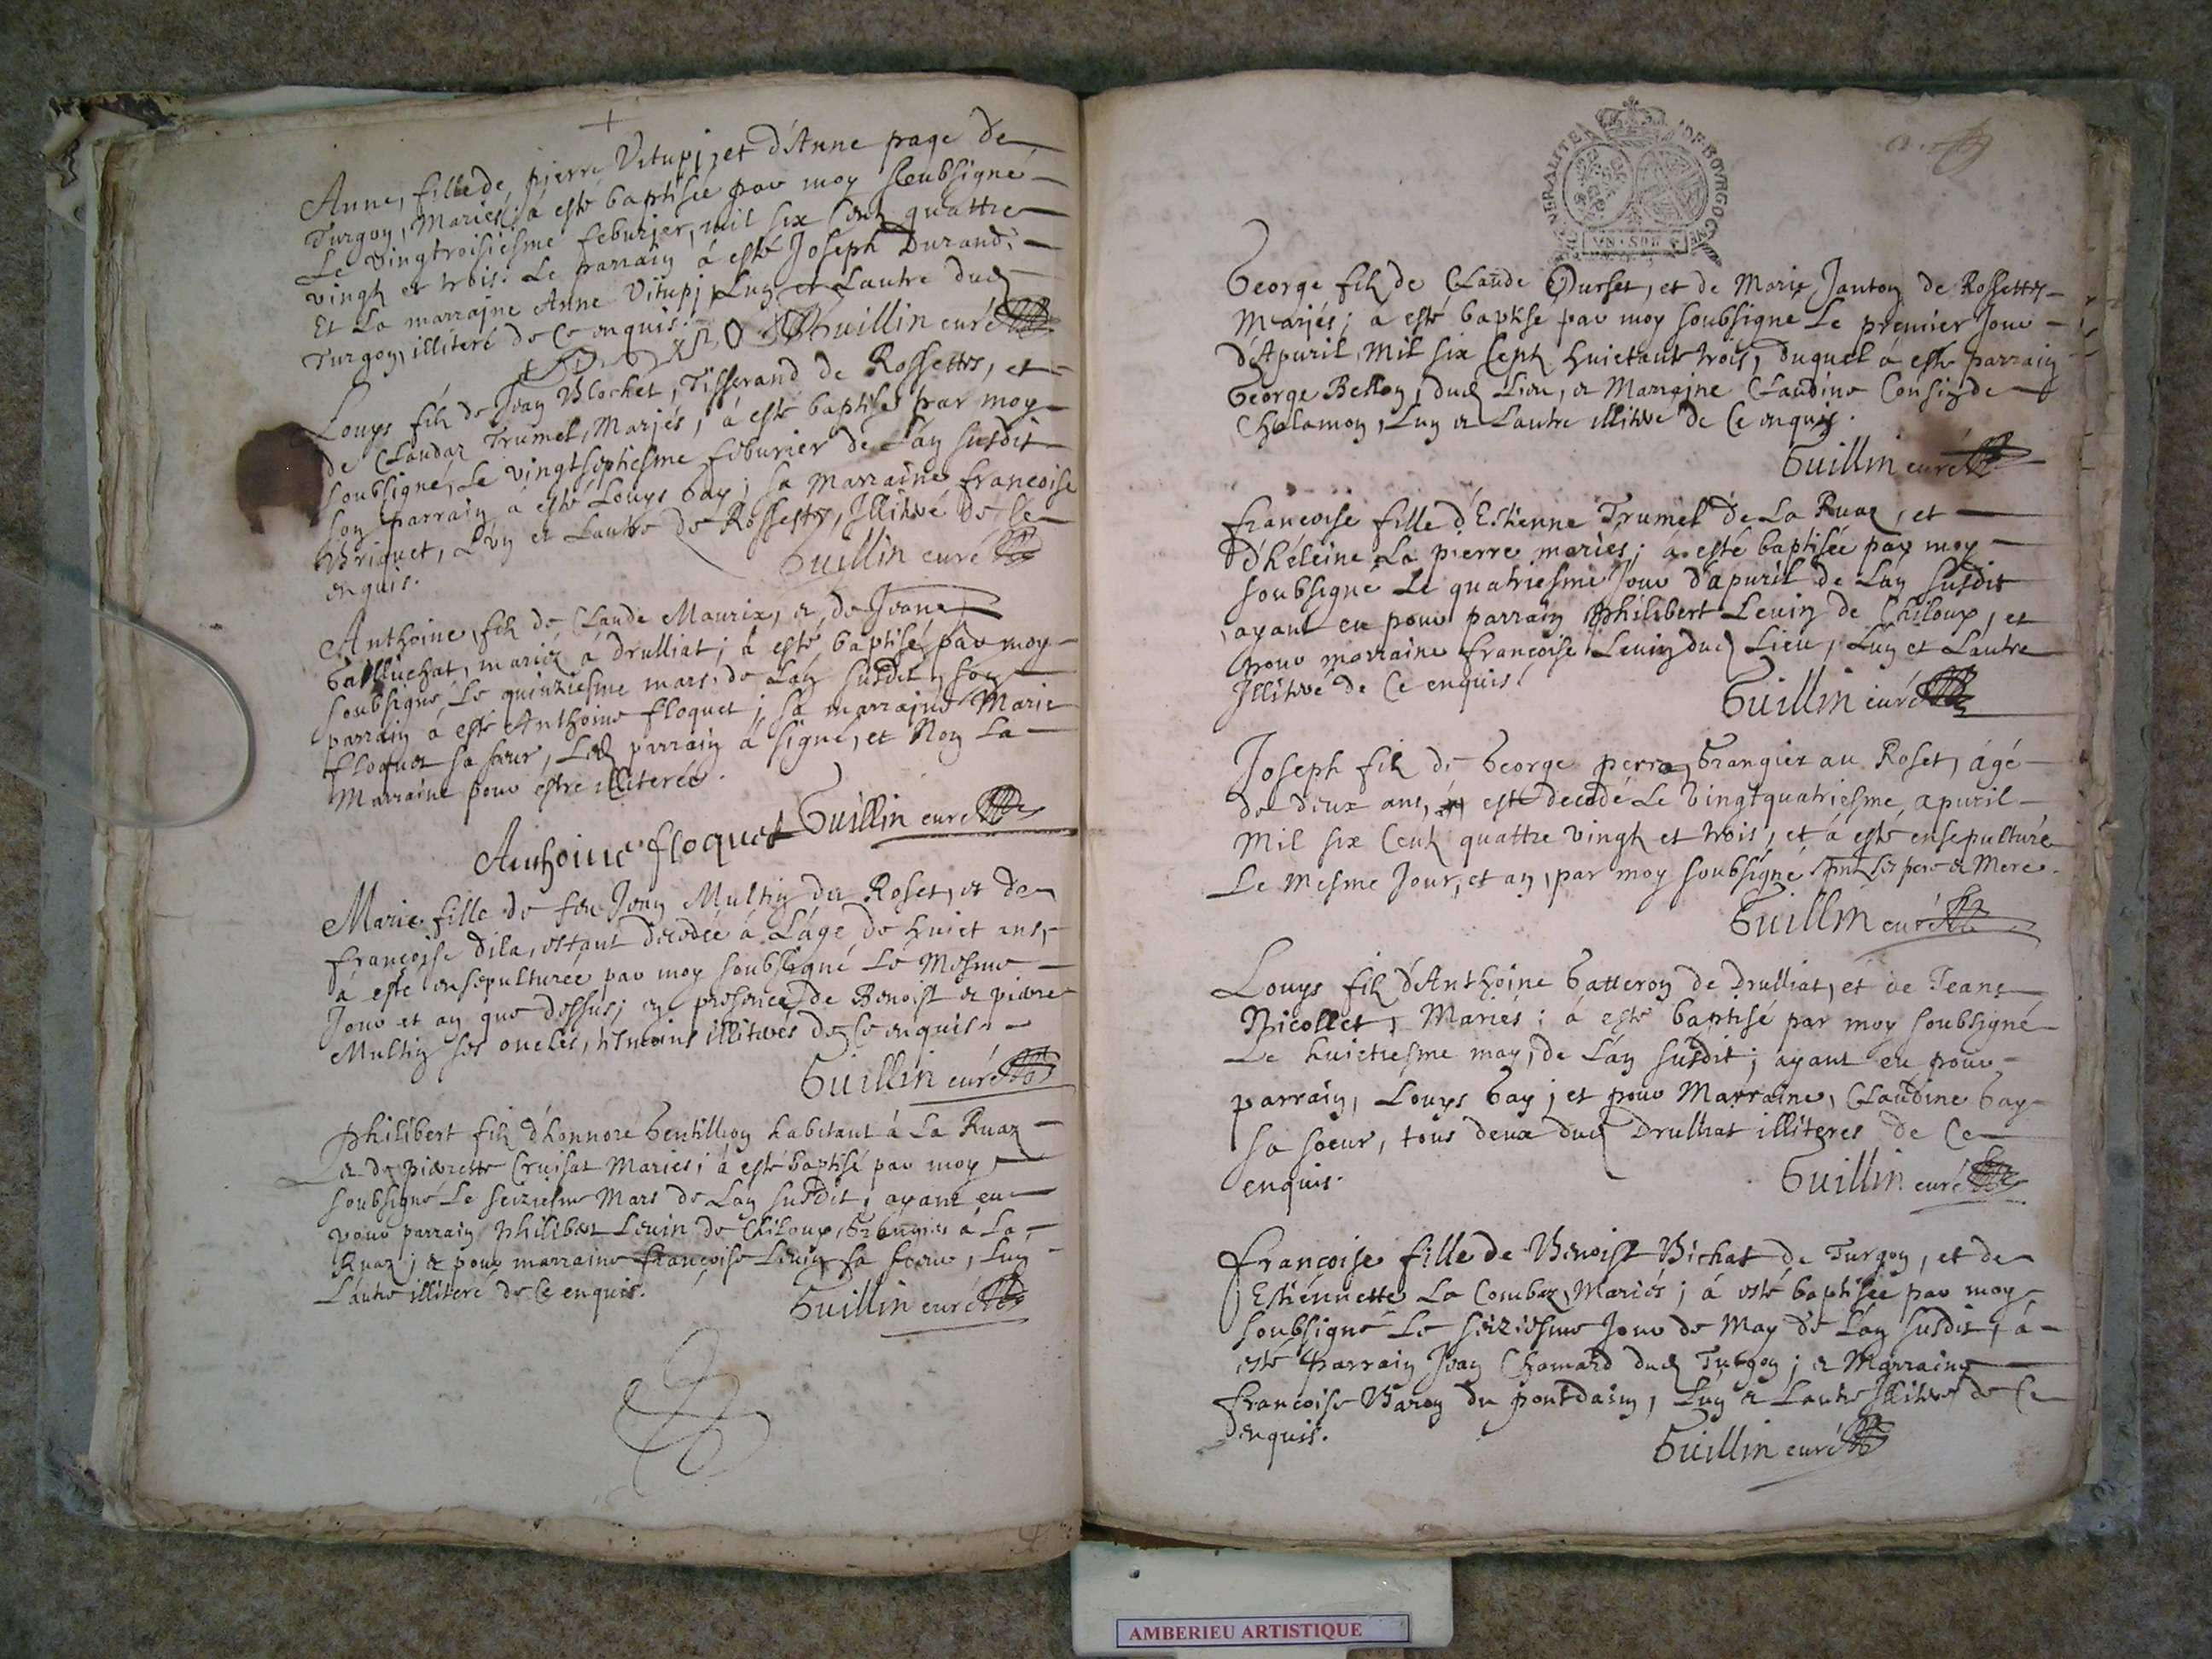 Anne, fille de pierre Vitupj, et d'Anne page de
Turgon, Mariés; á esté baptisée par moy soubsigné
Le vingtroisiesme feburier, mil six Cent quattre
vingtz et trois. Le parrain á esté Joseph Durand;
Et La marrajne Anne Vitupj, Lun et Lautre dud
Turgon, illiteré de Ce enquis. Guillin curé
Louys filz de Jean Blochet, Tisserand de Rossettes, et
de Claudaz Trumel, Marjés, á esté baptisé par moy
soubsigné, Le vingtseptiesme feburier de L'an susdit
son parrain á esté Louys Gay; sa Marraine françoise
Briquet, L'un et Lautre de Rossettes, Illiteré de Ce
enquis. Guillin curé
Anthoine, filz de Claude Maurix, et de Jeane
mariéz á Drulliat; á esté baptisé par moy
soubsigné, Le quinziesme mars de L'an susdit, son
parrain á esté Anthoine floquet; sa marrajne Marie
floquet sa soeur, Led parrain á signé, et Non La
Marraine pour estre illiterée.
Anthoine floquet Guillin curé
Marie fille de feu Jean Multin du Roset, et de
françoise Dila, estant decedée á L'áge de huict ans,
á esté ensepulturee par moy soubsigné Le Mesme
Jour et an que dessus; en presence de Benoist et pierre
Multin ses oncles, tesmoins illiterés de Ce enquis.
Guillin curé
Philibert filz d'honnoré Gentillion habitant á La Ruaz
et de pierrette Cruisat Mariés; á esté baptisé par moy
soubsigné Le seiziesme Mars de L'an susdit; ayant eu
pour parrain Philibert Levin de Chiloup, Grangier á La
Ruaz; et pour marraine françoise Levin sa soeur, Lun
Lautre illiteré de Ce enquis.
Guillin curé
GENERALITE DE BOURGOGNE
VN SOU
George filz de Claude Durset, et de Marie Janton de Rossettes
Marjés; á esté baptisé par moy soubsigné Le premier Jour
d'Apuril, Mil six Cent huictante trois, duquel á esté parrain
George Bellon, dud Lieu, et Marrajne Claudine Consin de
Chalamon, Lun et Lautre illiteré de Ce enquis.
Guillin curé
françoise fille d'Estienne Trumel de La Ruaz, et
d'héleine La pierre mariés; á esté baptisée par moy
soubsigné Le quatriesme Jour d'apuril de L'an susdit
ayant eu pour parrain Philibert Levin de Chiloup, et
pour marraine françoise Levin dud Lieu, Lun et Lautre
Illiteré de Ce enquis.
Guillin curé
Joseph filz de George perra, Grangier au Roset, ágé
de deux ans, est decedé Le vingtquatriesme apuril
Mil six Cent quattre vingtz et trois, et á esté ensepulturé
Le Mesme Jour, et an, par moy soubsigné pnt ses pere et Mere.
Guillin curé
Louys filz d'Anthoine Batteron de Drulliat, et de Jeane
Nicollet, Mariés; á esté baptisé par moy soubsigné
Le huictiesme may, de L'an susdit; ayant eu pour
parrain, Louys Gay; et pour Marraine, Claudine Gay
sa soeur, tous deux dud Drulliat illiteres de Ce
enquis. Guillin curé
françoise fille de Benoist Bichat de Turgon, et de
Estiennette La Combaz, Mariés; á esté baptisée par moy
soubsigné Le seiziesme Jour de May de L'an susdit, á
esté parrain Jean Chamard dud Turgon; et Marraine
françoise Baron du pontdain, Lun et Lautre illiteré de Ce
enquis. Guillin curé
AMBERIEU ARTISTIQUE